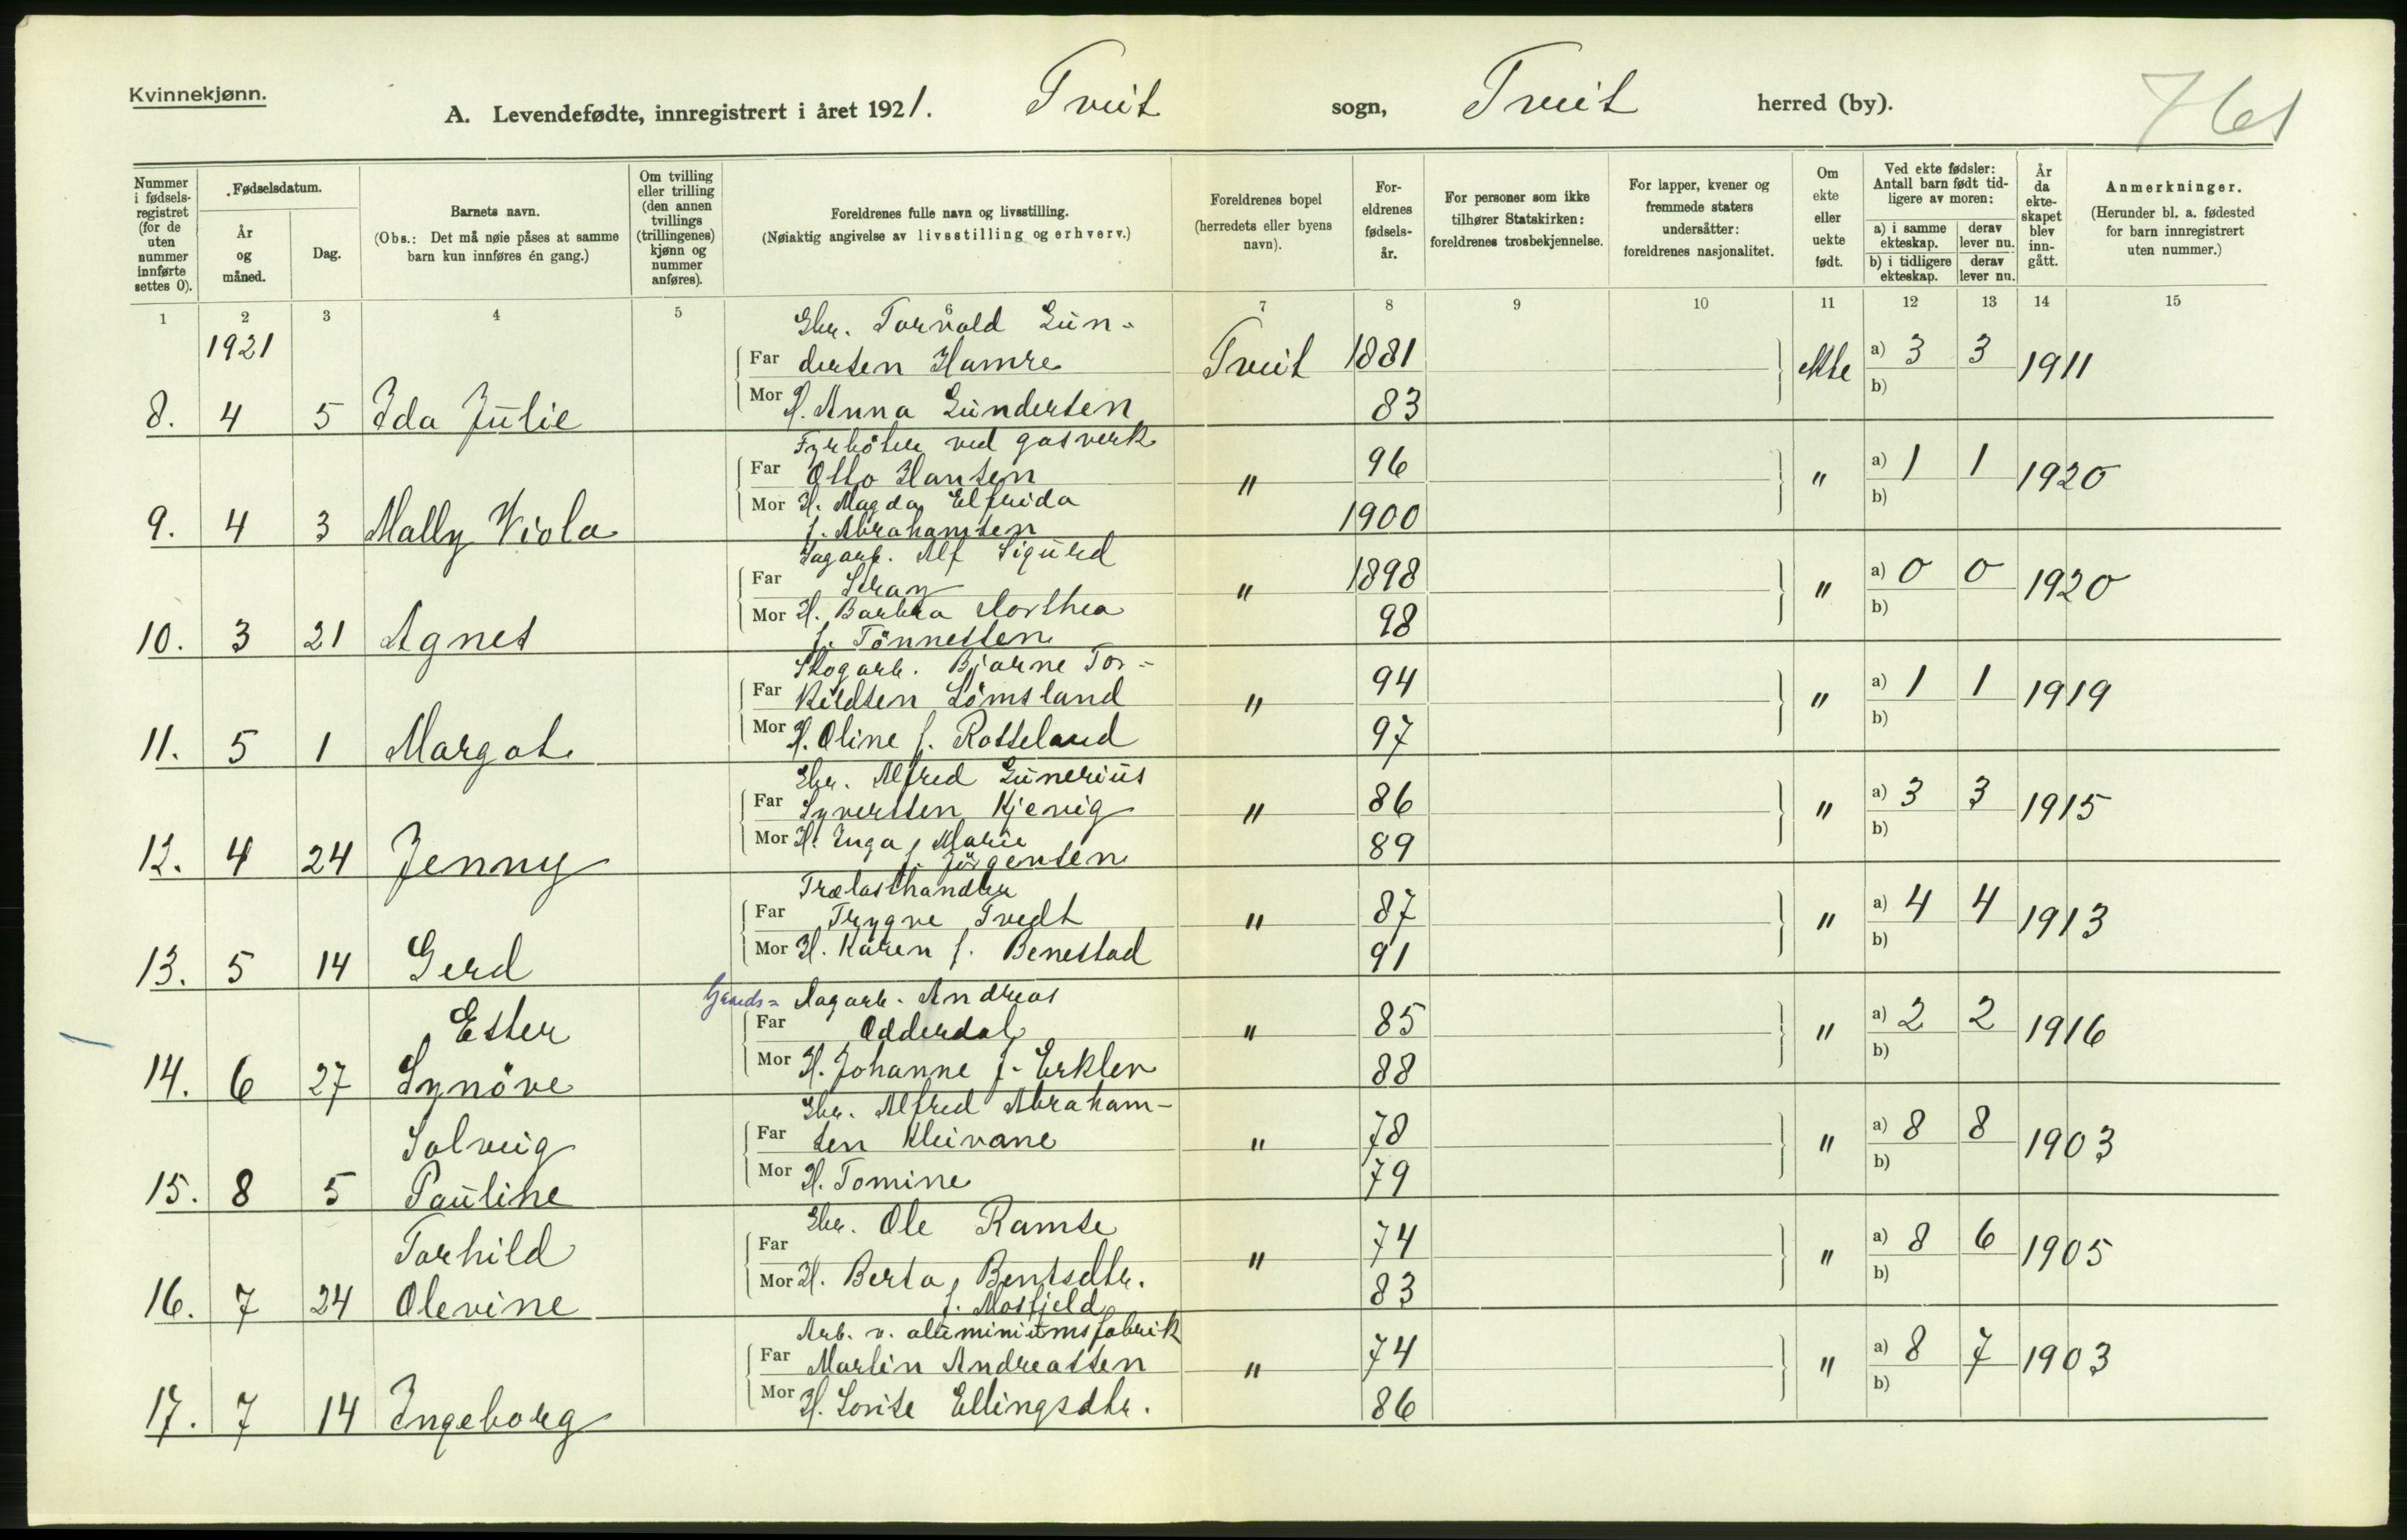 Kvinnekjønn.
A. Levendefødte, innregistrert i året 1921. Tveit sogn, Tveit herred (by). 761
Nummer i fødselsregistret (for de uten nummer innførte settes 0).
Fødselsdatum.
År og måned.
Dag.
Barnets navn.
(Obs.: Det må nøie påses at samme barn kun innføres én gang.)
Om tvilling eller trilling (den annen tvillings (trillingenes) kjønn og nummer anføres).
Foreldrenes fulle navn og livsstilling.
(Nøiaktig angivelse av livsstilling og erhverv.)
Foreldrenes bopel
(herredets eller byens navn).
Foreldrenes fødselsår.
For personer som ikke tilhører Statskirken: foreldrenes trosbekjennelse.
For lapper, kvener og fremmede staters undersåtter: foreldrenes nasjonalitet.
Om ekte eller uekte født.
Ved ekte fødsler: Antall barn født tidligere av moren:
a) i samme ekteskap. derav lever nu.
b) i tidligere ekteskap. derav lever nu.
År da ekteskapet blev inngått.
Anmerkninger.
(Herunder bl. a. fødested for barn innregistrert uten nummer.)
1 2 3 4 5 7 8 9 10 11 12 13 14 15
1921
Gbr. Torvald Gun-
Far dersen Hamre Tveit 1881 ekte a) 3 3 1911
Mor H. Anna Gundersen 83 b)
8. 4 5 Ida Julie
Fyrböter ved gasverk
Far Otto Hansen " 96 " a) 1 1 1920
Mor H. Magda Elfrida b)
f. Abrahamsen 1900
9. 4 3 Mally Viola
Sagarb. Alf Sigurd
Far Stray " 1898 " a) 0 0 1920
Mor H. Barbra Dorthea b)
f. Tönnessen 98
10. 3 21 Agnes
Skogarb. Bjarne Tor-
Far kildsen Lömsland " 94 " a) 1 1 1919
Mor H. Oline f. Rosseland 97 b)
11. 5 1 Margot
Gbr. Alfred Gunerius
Far Syvertsen Kjevig " 86 " a) 3 3 1915
Mor H. Inga Marie b)
f. Jörgensen 89
12. 4 24 Jenny
Trælasthandler
Far Trygve Tvedt " 87 " a) 4 4 1913
Mor H. Karen f. Benestad 91 b)
13. 5 14 Gerd
Gaards= Dagarb. Andreas
Far Odderdal " 85 " a) 2 2 1916
Mor H. Johanne f. Erklev 88 b)
14. 6 27 Ester Synöve
Gbr. Alfred Abraham-
Far sen Kleivane " 78 " a) 8 8 1903
Mor H. Tomine 79 b)
15. 8 5 Solveig Pauline
Gbr. Ole Ramse
Far " 74 " a) 8 6 1905
Mor H. Berta Bentsdtr. 83 b)
f. Mosfjeld
16. 7 24 Torhild Olevine
Arb. v. aluminiumsfabrik
Far Martin Andreassen " 74 " a) 8 7 1903
Mor H. Lovise Ellingsdtr. 86 b)
17. 7 14 Ingeborg